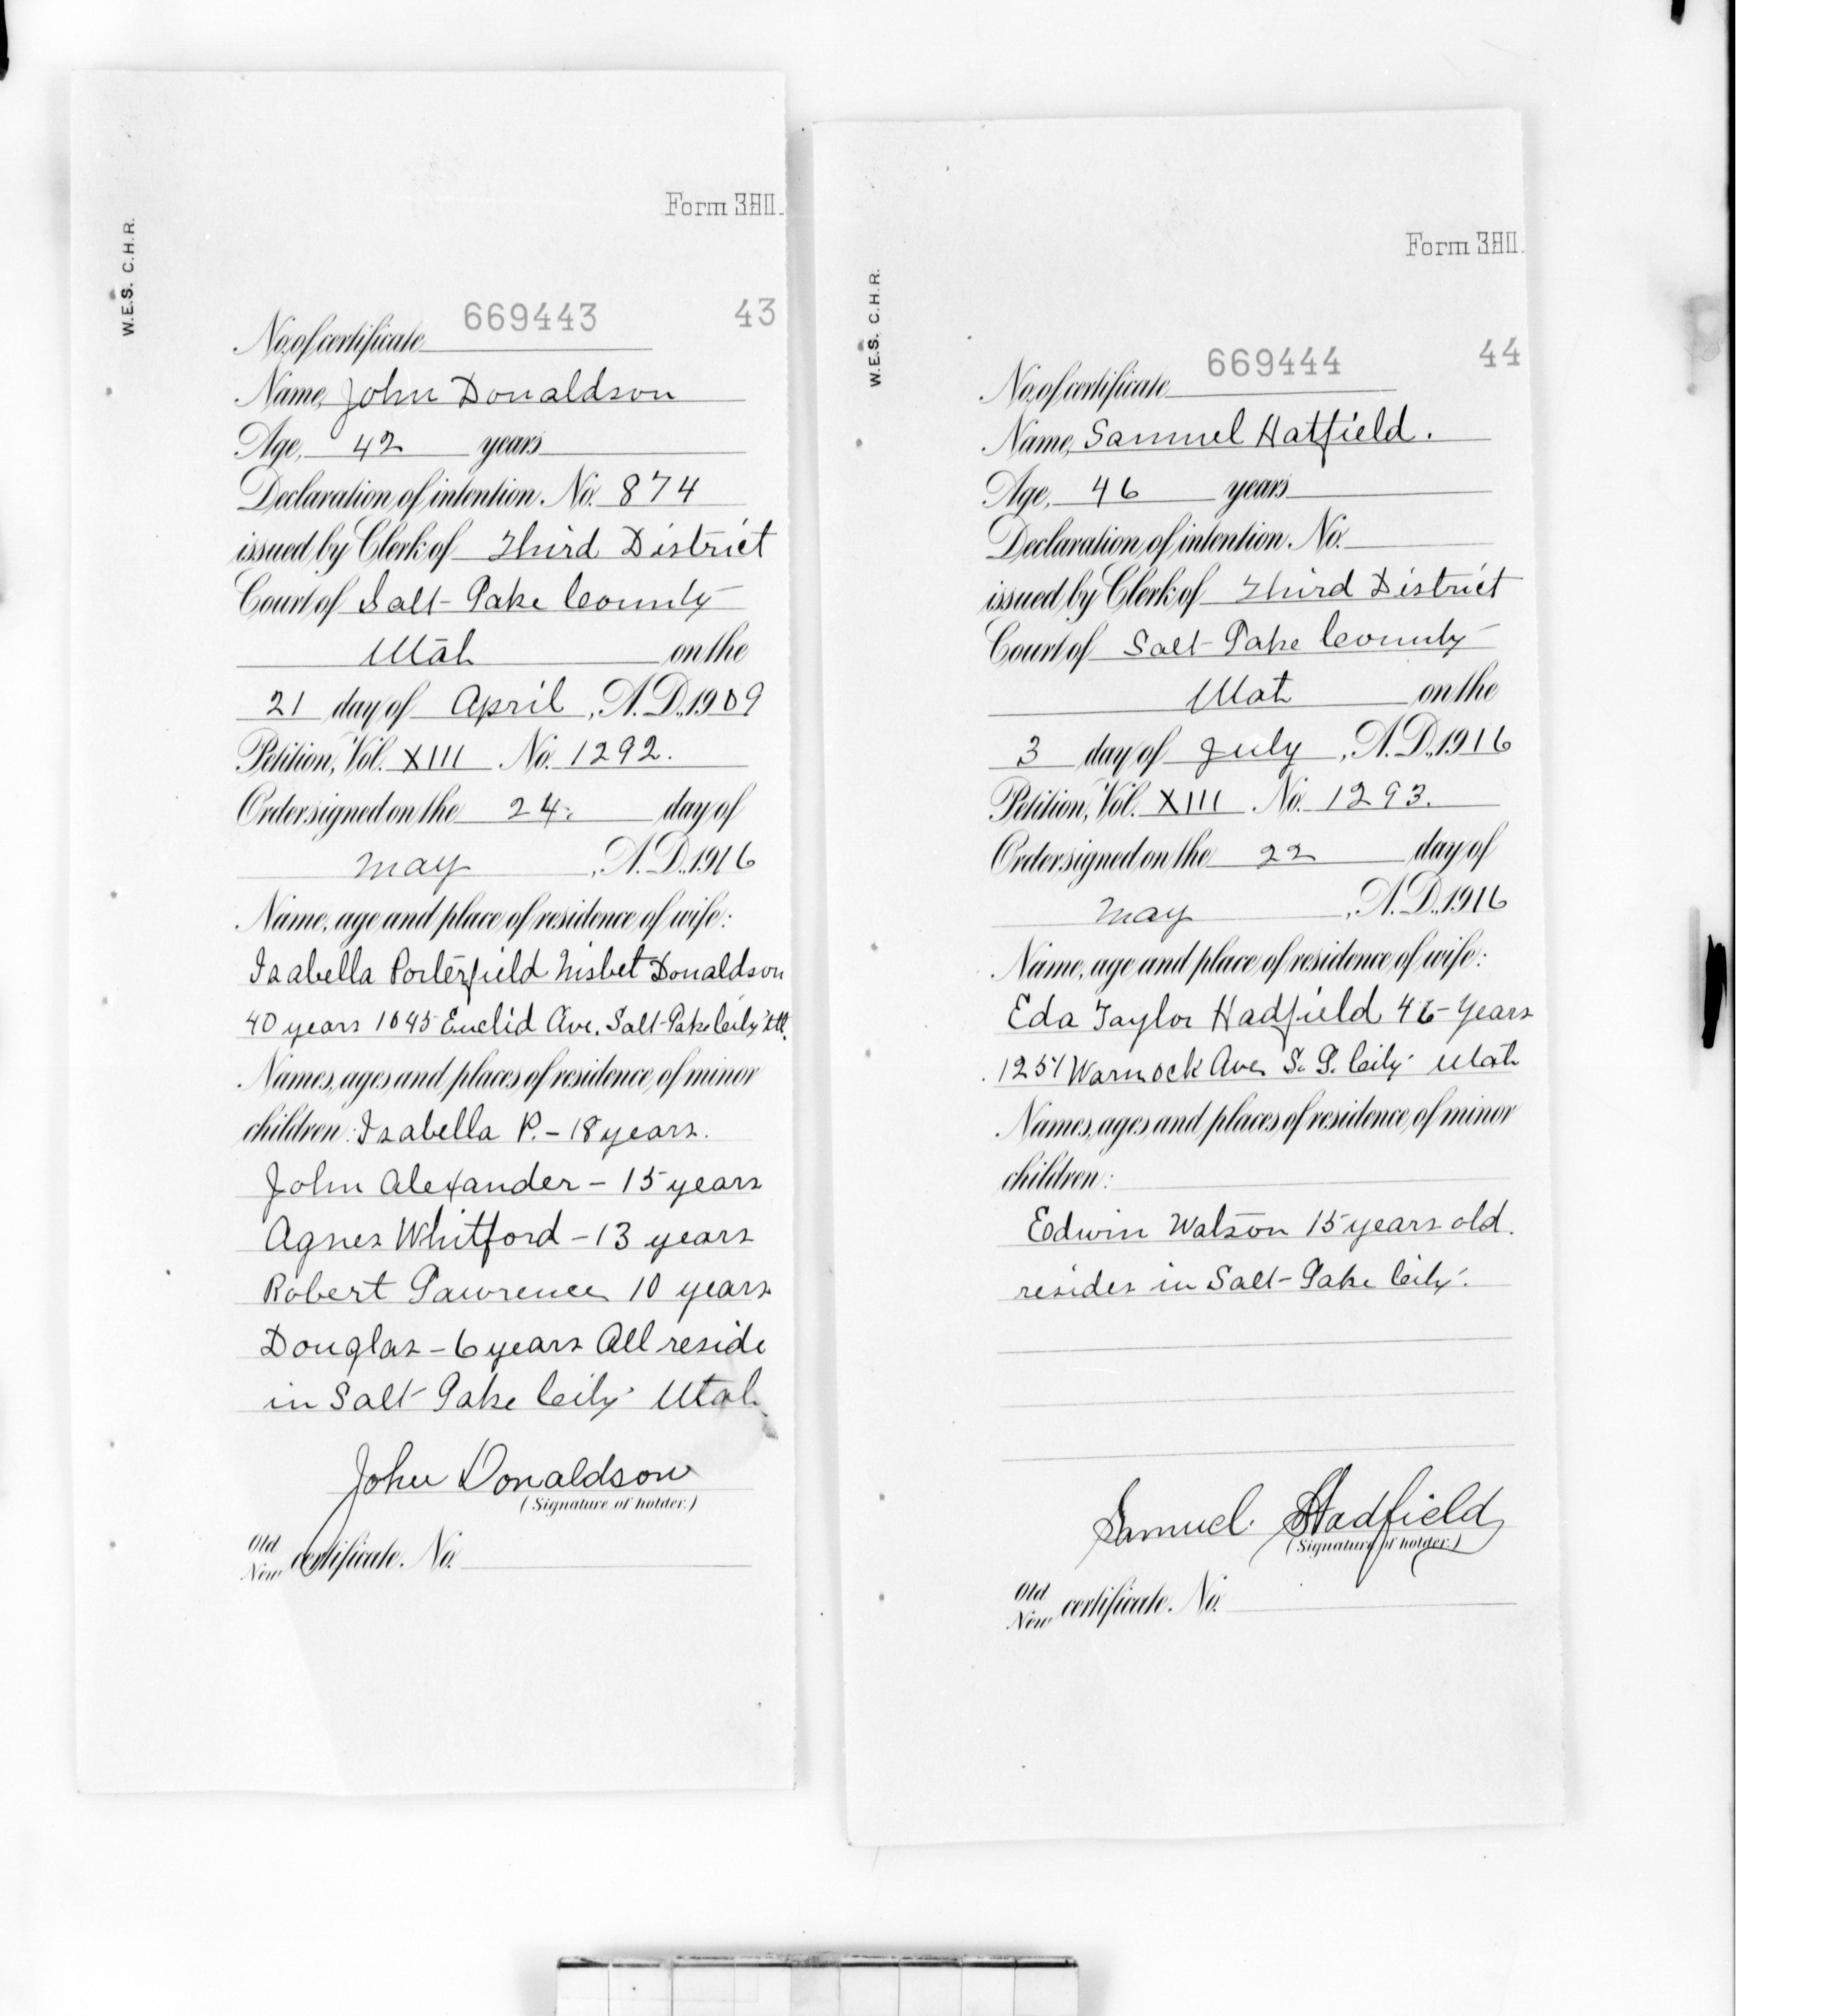 Form 380.
W.E.S. C.H.R.
669443 43
No. of certificate
Name, John Donaldson
Age, 42 years
Declaration of intention, No. 874
issued by Clerk of Third District
Court of Salt Lake County
Utah on the
21 day of April, A.D. 1909
Petition, Vol. XIII No. 1292.
Order signed on the 24. day of
May, A.D. 1916
Name, age and place of residence of wife:
Isabella Porterfield Nisbet Donaldson
40 years 1045 Euclid Ave. Salt Lake City Ut.
Names, ages and places of residence of minor
children: Isabella P. - 18 years.
John Alexander - 15 years
Agnes Whitford - 13 years
Robert Lawrence 10 years
Douglas - 6 years All reside
in Salt Lake City Utah.
John Donaldson
(Signature of holder.)
Old
New certificate, No.
Form 380.
W.E.S. C.H.R.
669444 44
No. of certificate
Name, Samuel Hatfield.
Age, 46 years
Declaration of intention, No.
issued by Clerk of Third District
Court of Salt Lake County
Utah on the
3 day of July, A.D. 1916
Petition, Vol. XIII No. 1293.
Order signed on the 22 day of
May, A.D. 1916
Name, age and place of residence of wife:
Eda Taylor Hadfield 46 - Years
1257 Warnock Ave S. L. City Utah
Names, ages and places of residence of minor
children:
Edwin Watson 15 years old.
resides in Salt Lake City.
Samuel Hadfield
(Signature of holder.)
Old
New certificate, No.